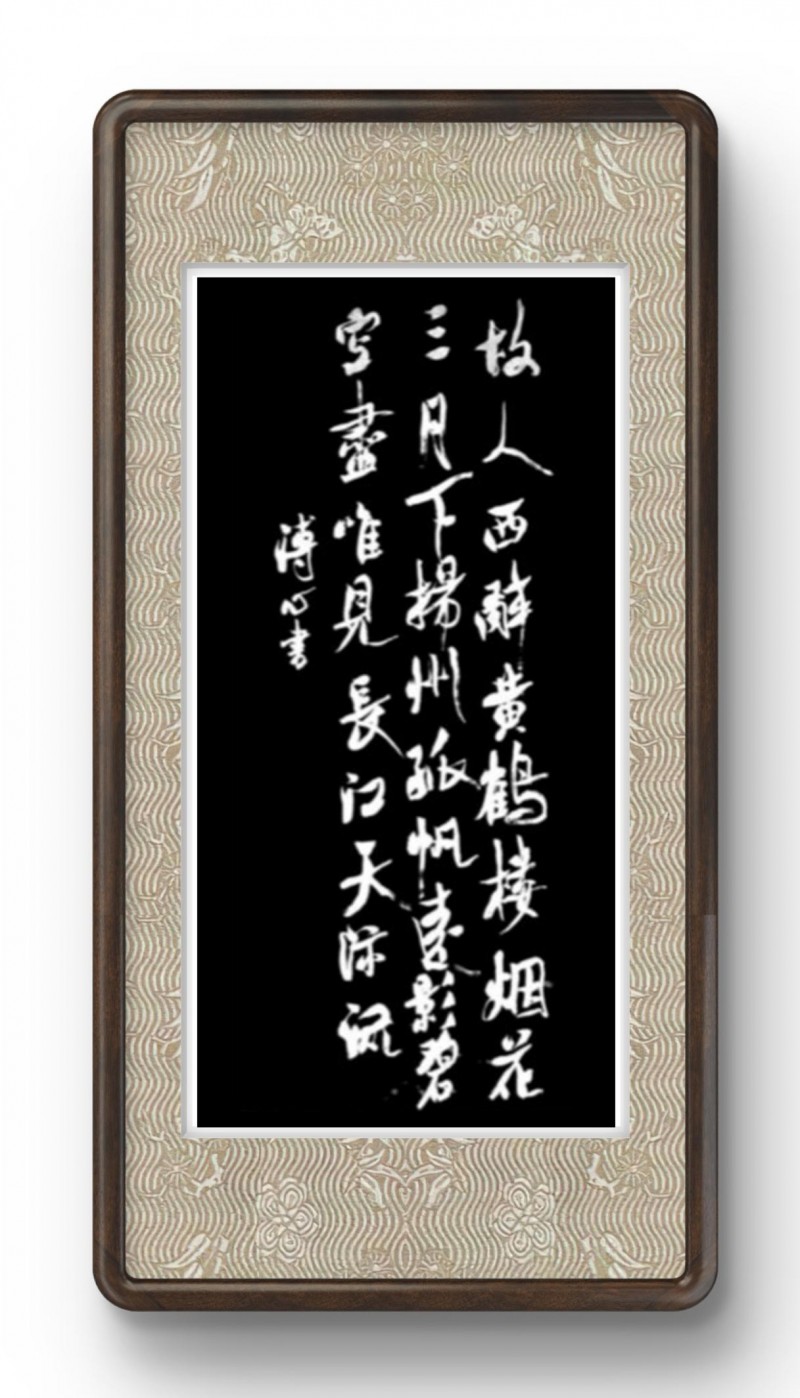 故人西辞黄鹤楼烟花
三月下揚州孤帆遠影碧
空盡唯見長江天际流
溥心書